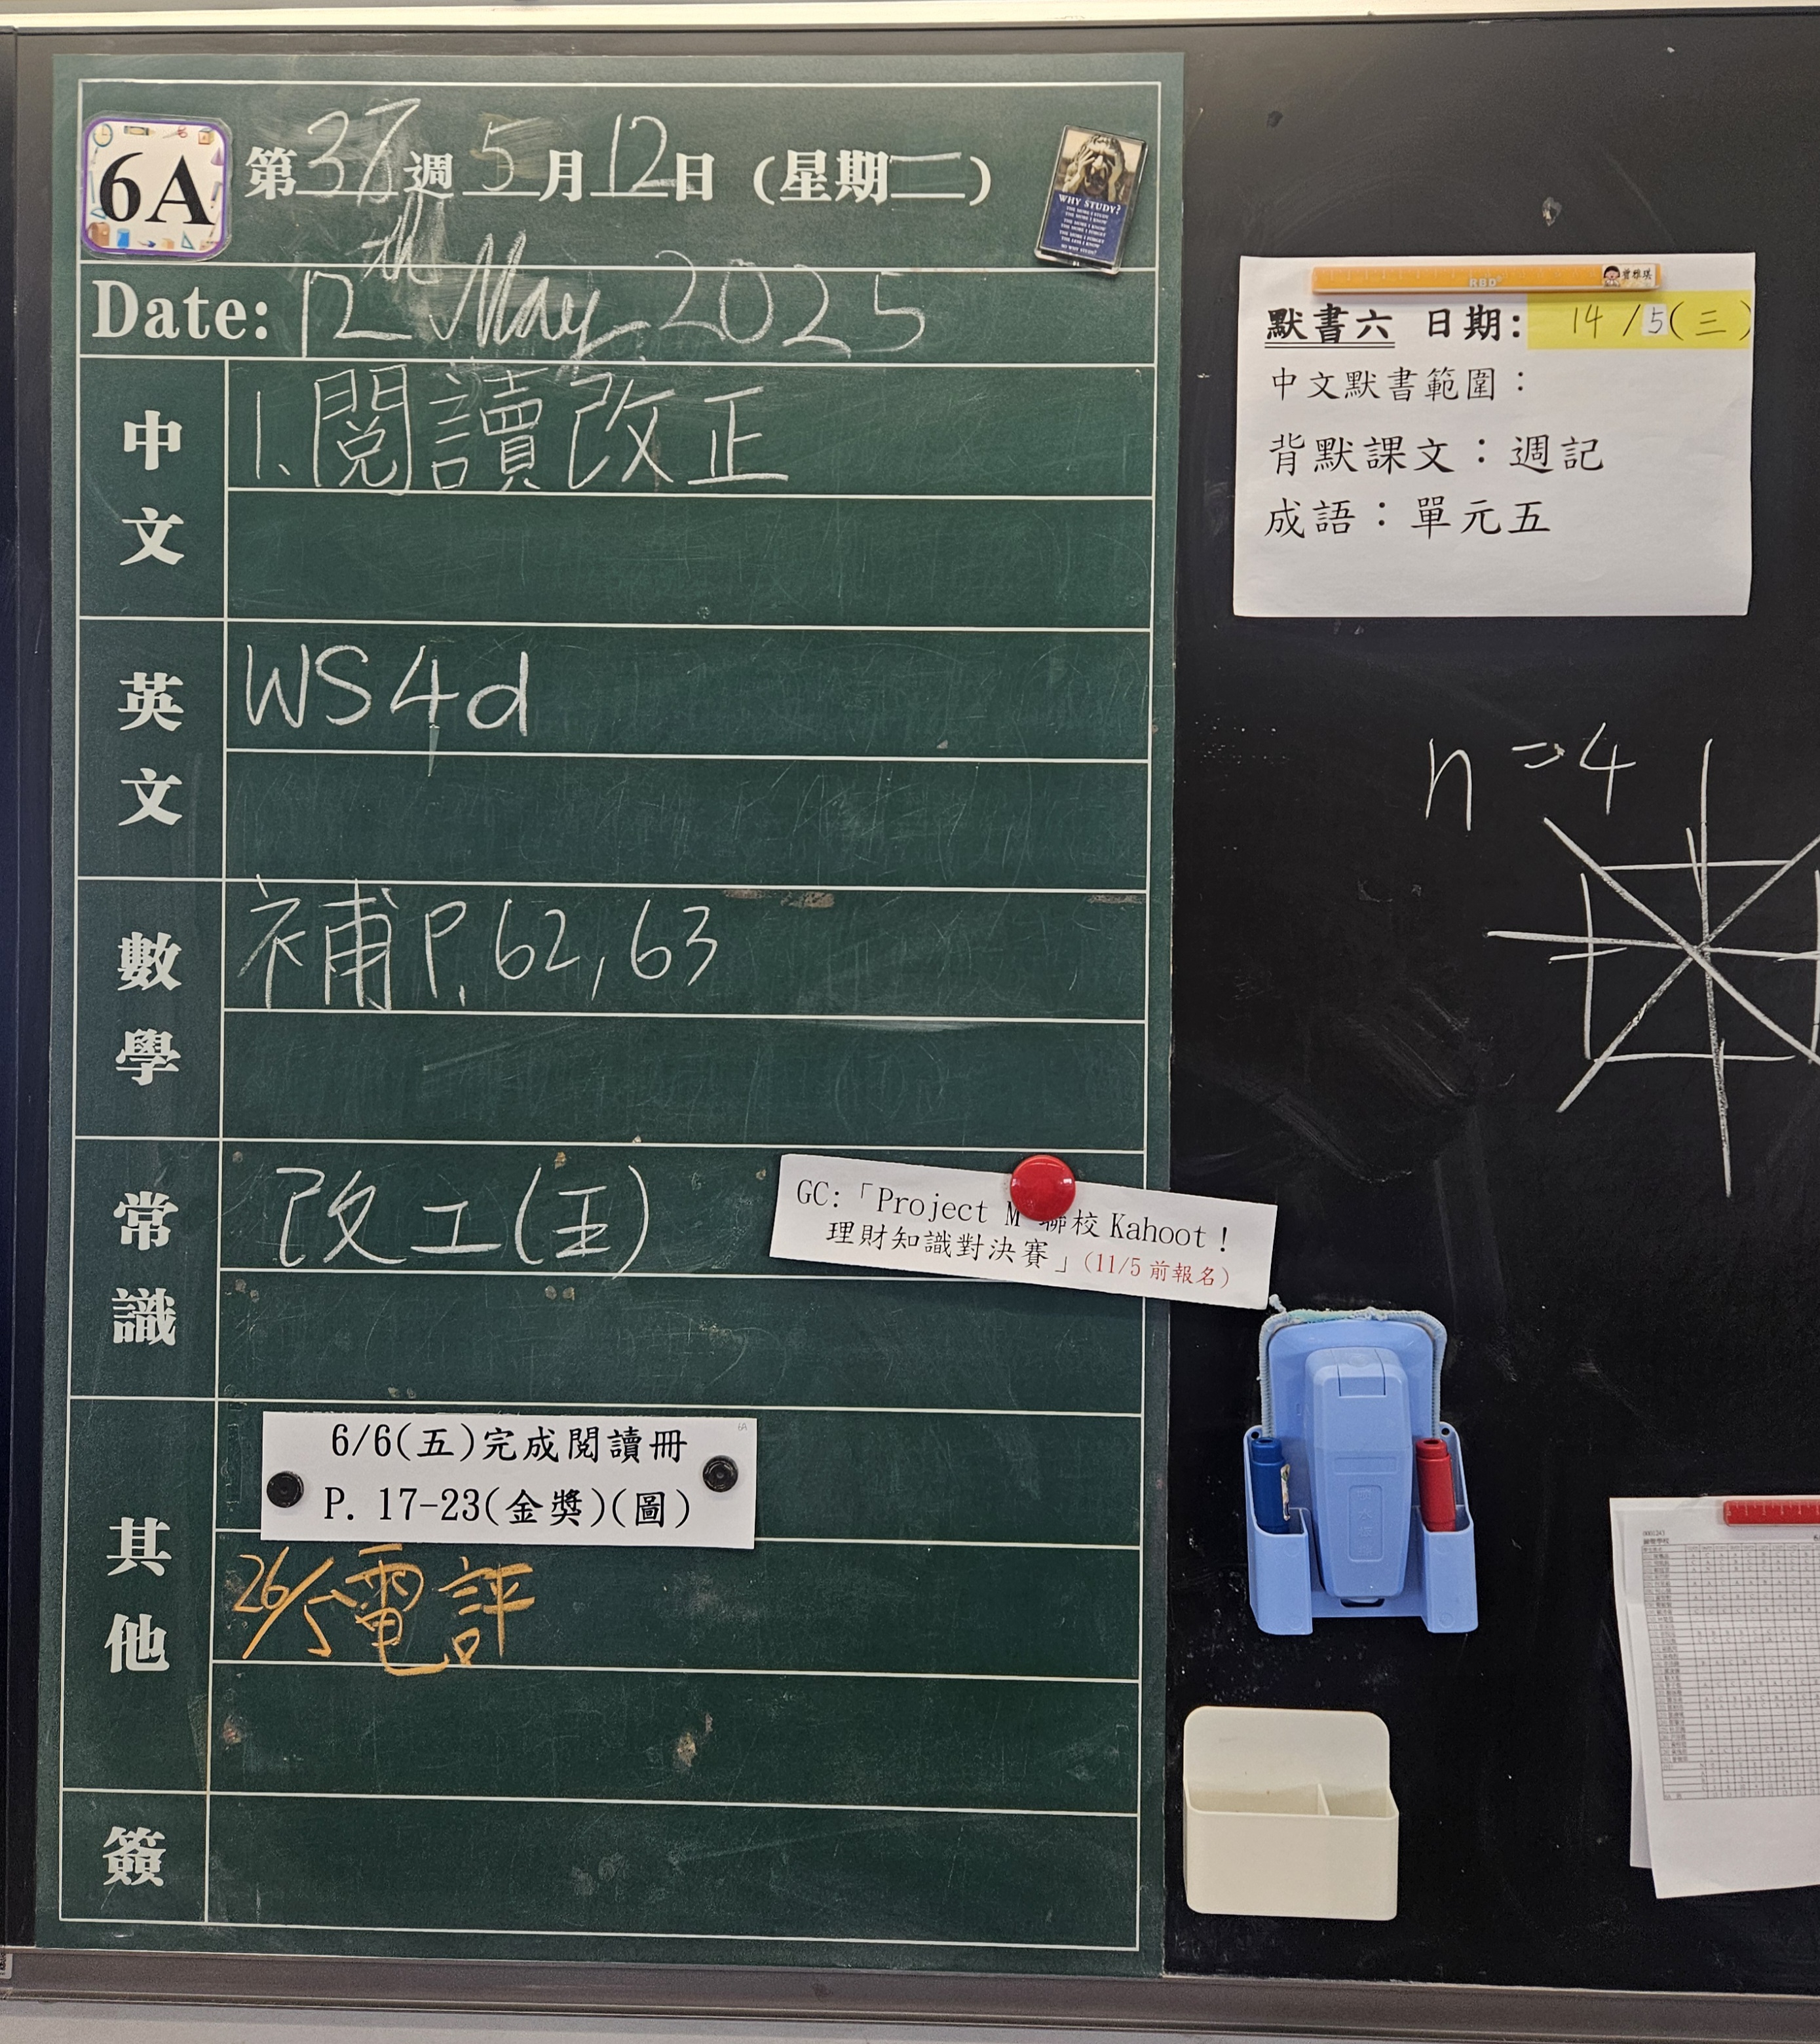 6A
第37週 5月12日 (星期二)
WHY STUDY?
THE MORE I STUDY
THE MORE I KNOW
THE MORE I KNOW
THE MORE I FORGET
THE MORE I FORGET
THE LESS I KNOW
SO WHY STUDY?
Date: 12th May 2025
中文
1.閱讀改正
英文
WS4d
數學
補P.62,63
常識
改工(王)
GC:「Project M 聯校 Kahoot！
理財知識對決賽」(11/5 前報名)
其他
6/6(五)完成閱讀冊
P. 17-23(金獎)(圖)
6A
26/5電評
簽
默書六 日期: 14/5(三)
中文默書範圍：
背默課文：週記
成語：單元五
n=4